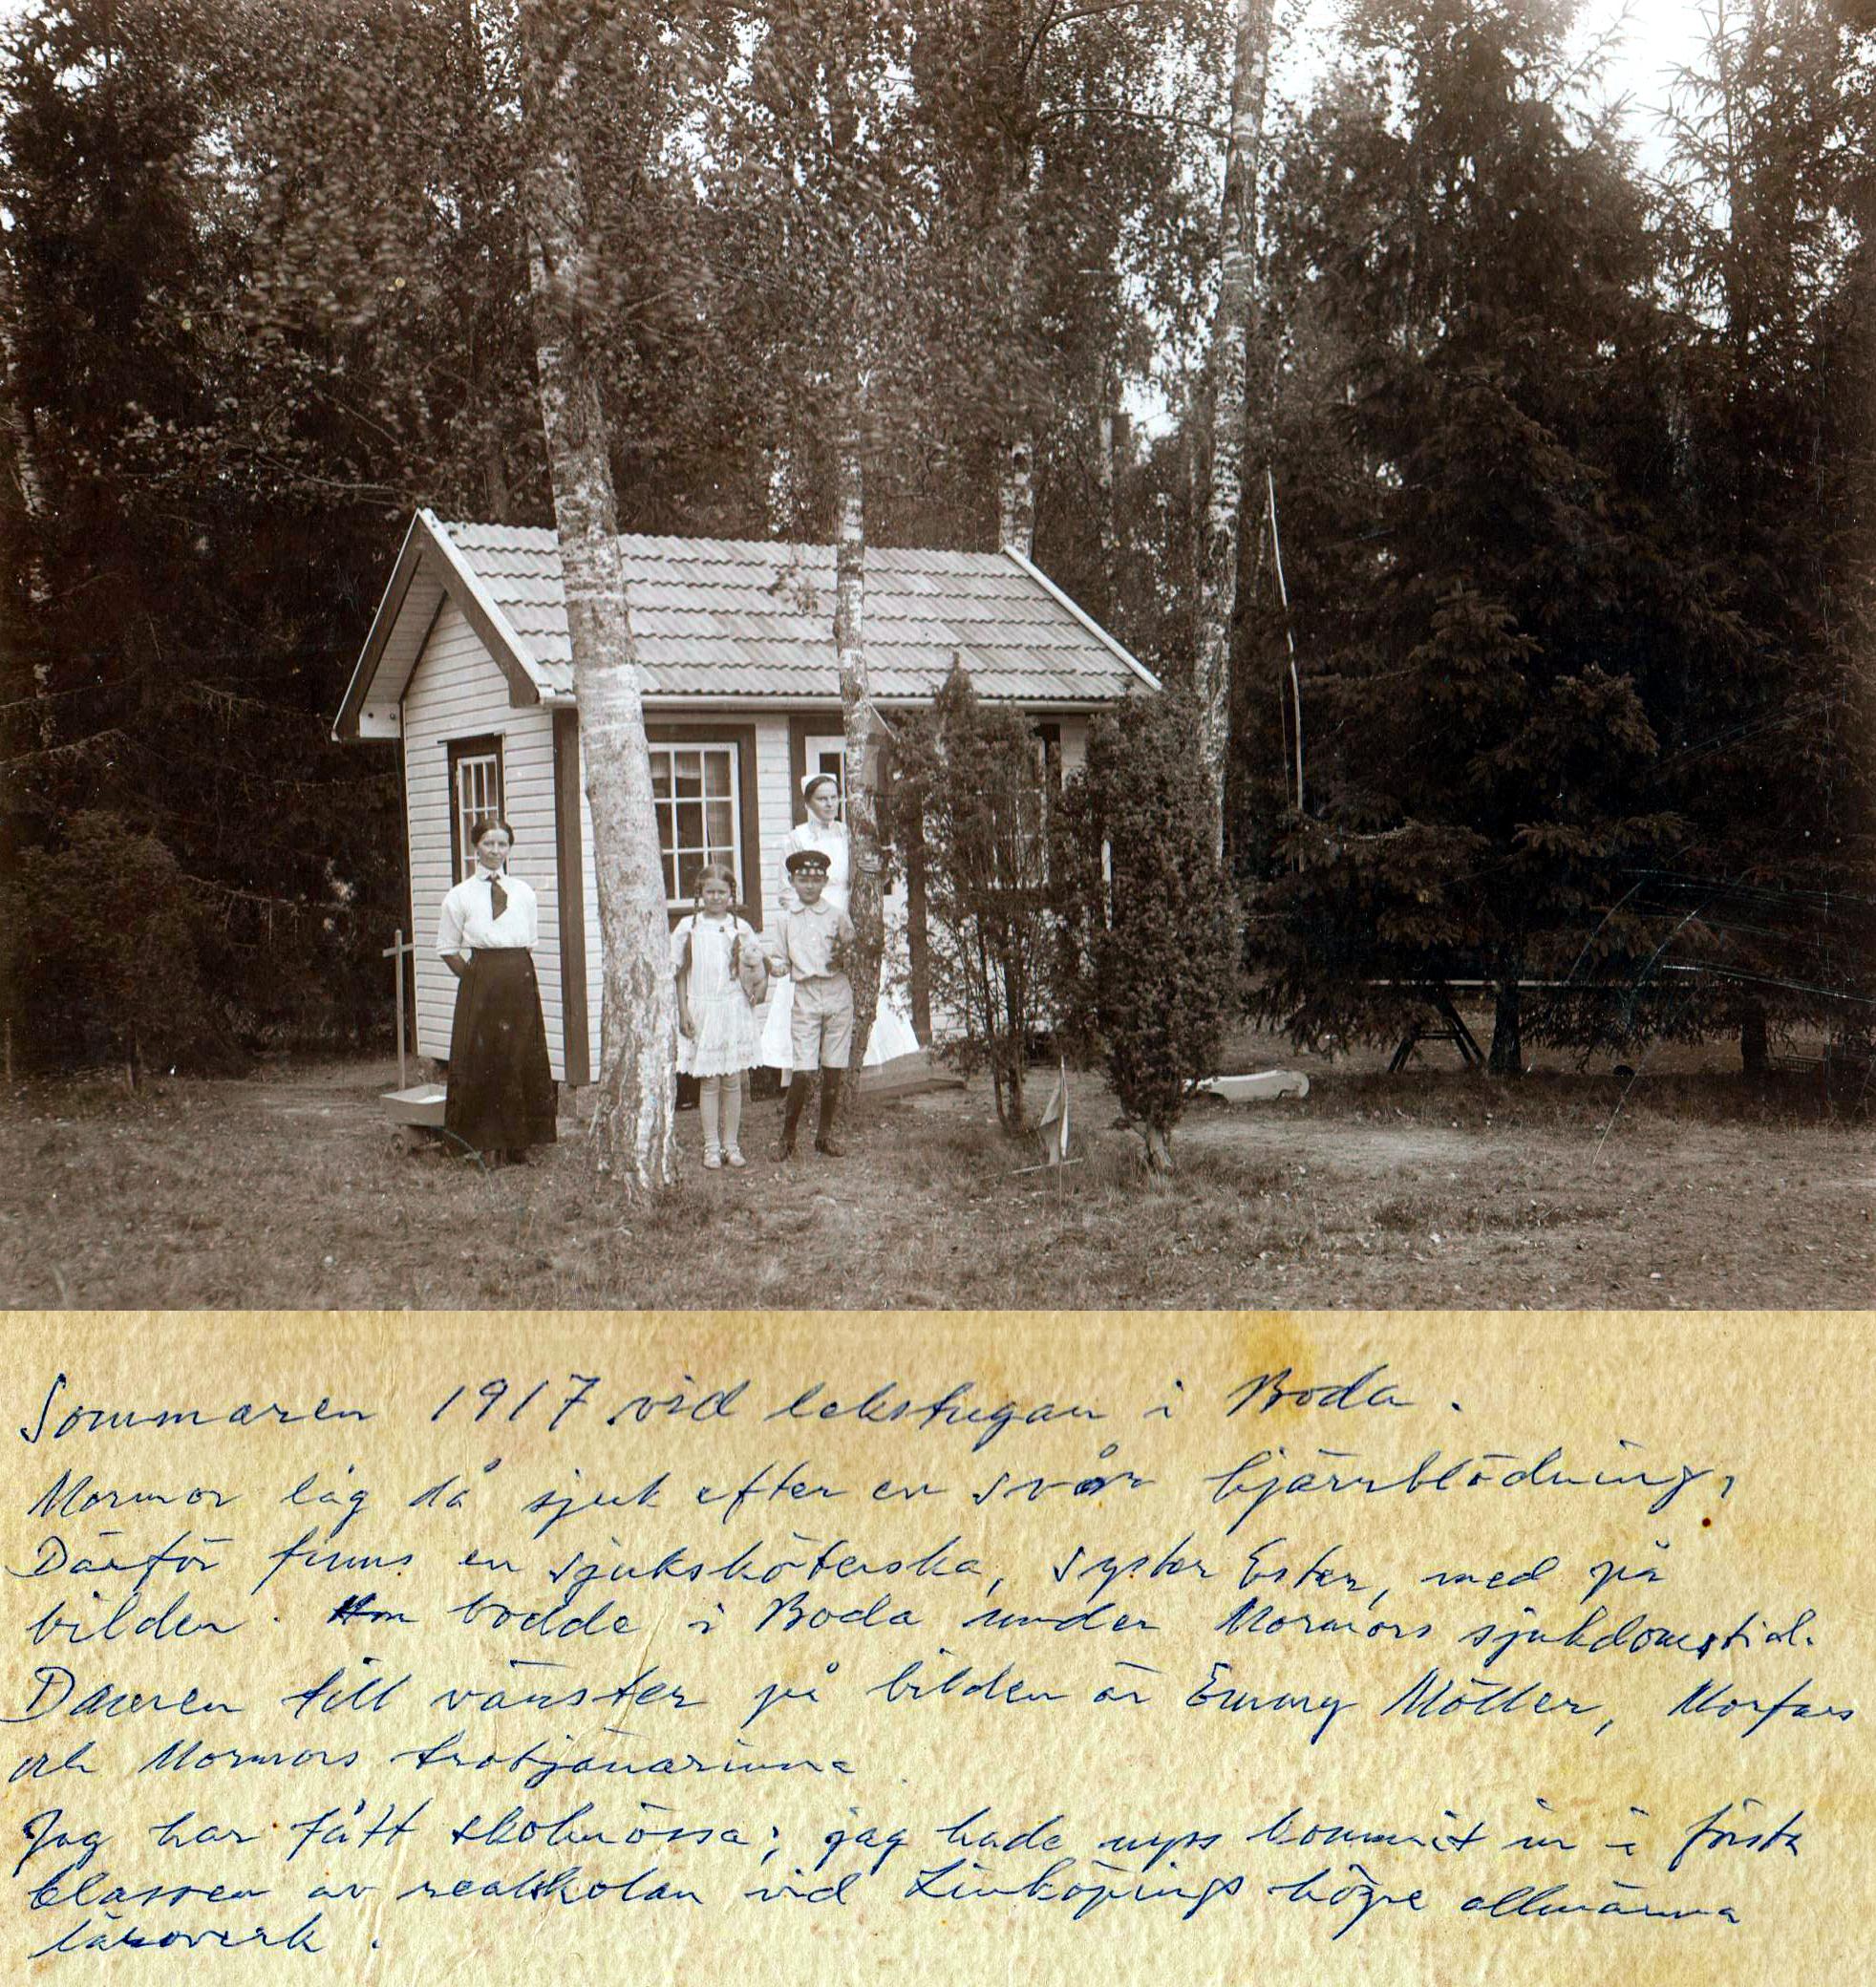 Sommaren 1917 vid lekstugan i Boda.
Mormor låg då sjuk efter en svår hjärnblödning,
Därför finns en sjuksköterska, syster Ester, med på
bilden. Hon bodde i Boda under Mormors sjukdomstid.
Damen till vänster på bilden är Emmy Möller, Morfars
och Mormors trotjänarinna
Jag har fått skolmössa; jag hade nyss kommit in i första
klassen av realskolan vid Linköpings högre allmänna
läroverk.